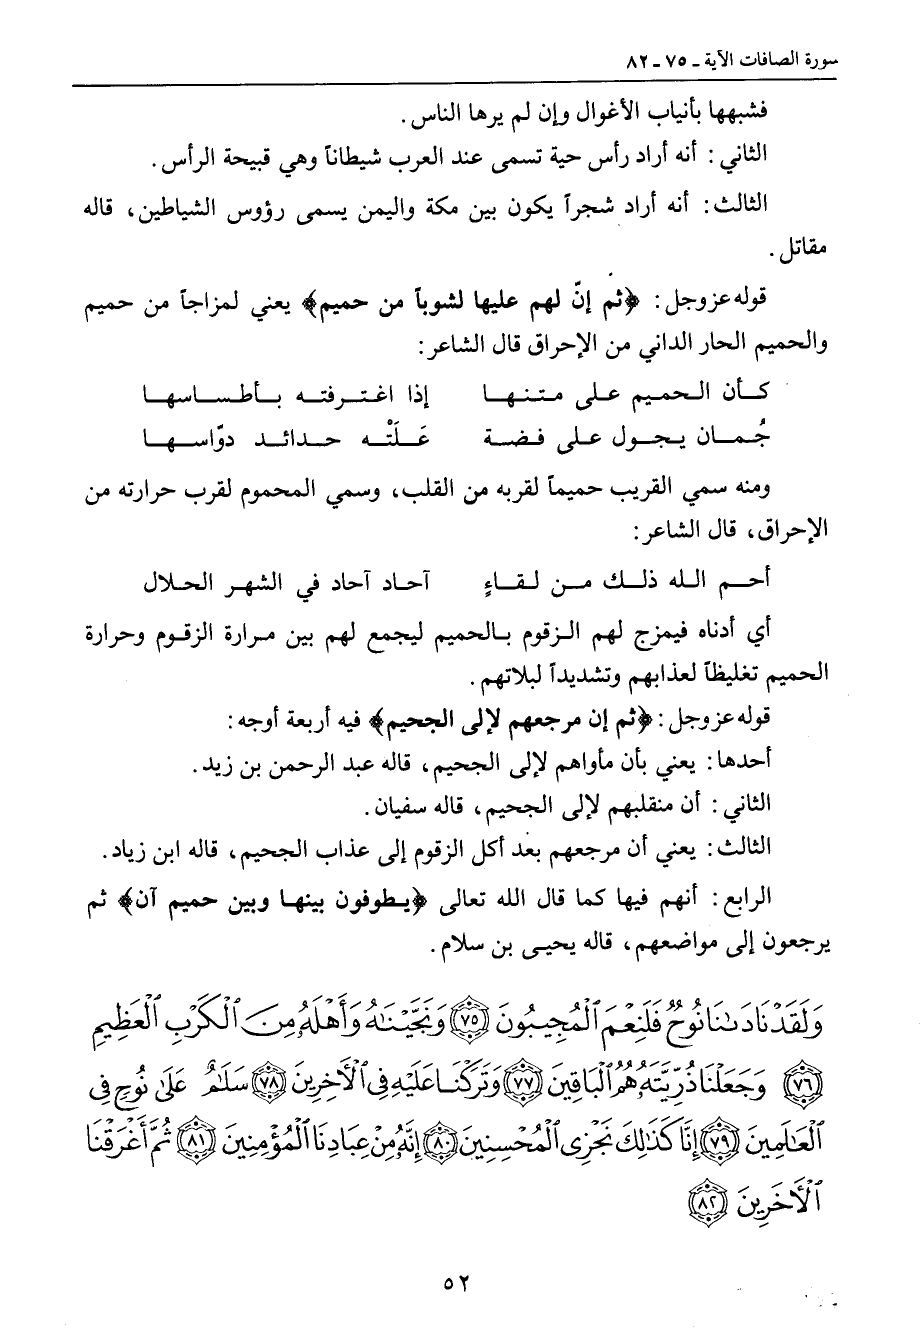 سورة الصافات الآية ـ ٧٥ ـ ٨٢
فشبهها بأنياب الأغوال وإن لم يرها الناس.
الثاني: أنه أراد رأس حية تسمى عند العرب شيطاناً وهي قبيحة الرأس.
الثالث: أنه أراد شجراً يكون بين مكة واليمن يسمى رؤوس الشياطين، قاله
مقاتل.
قوله عز وجل: ﴿ثم إنّ لهم عليها لشوباً من حميم﴾ يعني لمزاجاً من حميم
والحميم الحار الداني من الإحراق قال الشاعر:
كأن الحميم على متنها إذا اغترفته بأطساسها
جُمان يجول على فضة عَلَتْه حدائد دوّاسها
ومنه سمي القريب حميماً لقربه من القلب، وسمي المحموم لقرب حرارته من
الإحراق، قال الشاعر:
أحم الله ذلك من لقاءٍ آحاد آحاد في الشهر الحلال
أي أدناه فيمزج لهم الزقوم بالحميم ليجمع لهم بين مرارة الزقوم وحرارة
الحميم تغليظاً لعذابهم وتشديداً لبلائهم.
قوله عز وجل: ﴿ثم إن مرجعهم لإلى الجحيم﴾ فيه أربعة أوجه:
أحدها: يعني بأن مأواهم لإلى الجحيم، قاله عبد الرحمن بن زيد.
الثاني: أن منقلبهم لإلى الجحيم، قاله سفيان.
الثالث: يعني أن مرجعهم بعد أكل الزقوم إلى عذاب الجحيم، قاله ابن زياد.
الرابع: أنهم فيها كما قال الله تعالى ﴿يطوفون بينها وبين حميم آن﴾ ثم
يرجعون إلى مواضعهم، قاله يحيى بن سلام.
وَلَقَدْ نَادَىٰنَا نُوحٌ فَلَنِعْمَ ٱلْمُجِيبُونَ ﴿٧٥﴾ وَنَجَّيْنَٰهُ وَأَهْلَهُۥ مِنَ ٱلْكَرْبِ ٱلْعَظِيمِ
﴿٧٦﴾ وَجَعَلْنَا ذُرِّيَّتَهُۥ هُمُ ٱلْبَاقِينَ ﴿٧٧﴾ وَتَرَكْنَا عَلَيْهِ فِى ٱلْآخِرِينَ ﴿٧٨﴾ سَلَٰمٌ عَلَىٰ نُوحٍ فِى
ٱلْعَٰلَمِينَ ﴿٧٩﴾ إِنَّا كَذَٰلِكَ نَجْزِى ٱلْمُحْسِنِينَ ﴿٨٠﴾ إِنَّهُۥ مِنْ عِبَادِنَا ٱلْمُؤْمِنِينَ ﴿٨١﴾ ثُمَّ أَغْرَقْنَا
ٱلْآخَرِينَ ﴿٨٢﴾
٥٢